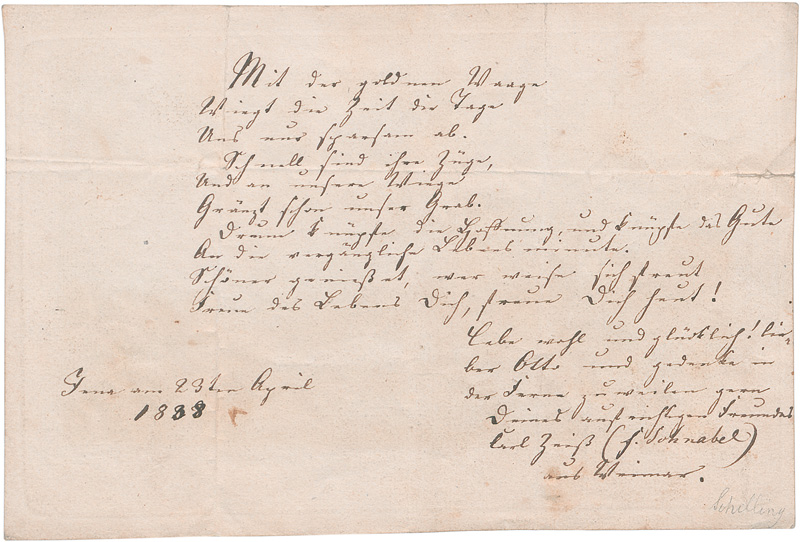 Mit der goldnen Waage
Wiegt die Zeit die Tage
Uns nur sparsam ab.
Schnell sind ihre Züge,
Und an unsere Wiege
Gränzt schon unser Grab.
Drum knüpfe die Hoffnung, und knüpfe das Gute
An die vergängliche Lebensminute.
Schöner genießet, wer weise sich freut
Freue des Lebens Dich, freue Dich heut!
Lebe wohl und glücklich! lie-
ber Otto und gedenke in
der Ferne zuweilen gern
Deines aufrichtigen Freundes
Carl Zeiß (f. Schnabel)
aus Weimar.
Jena am 23ten April
1838
Schilling